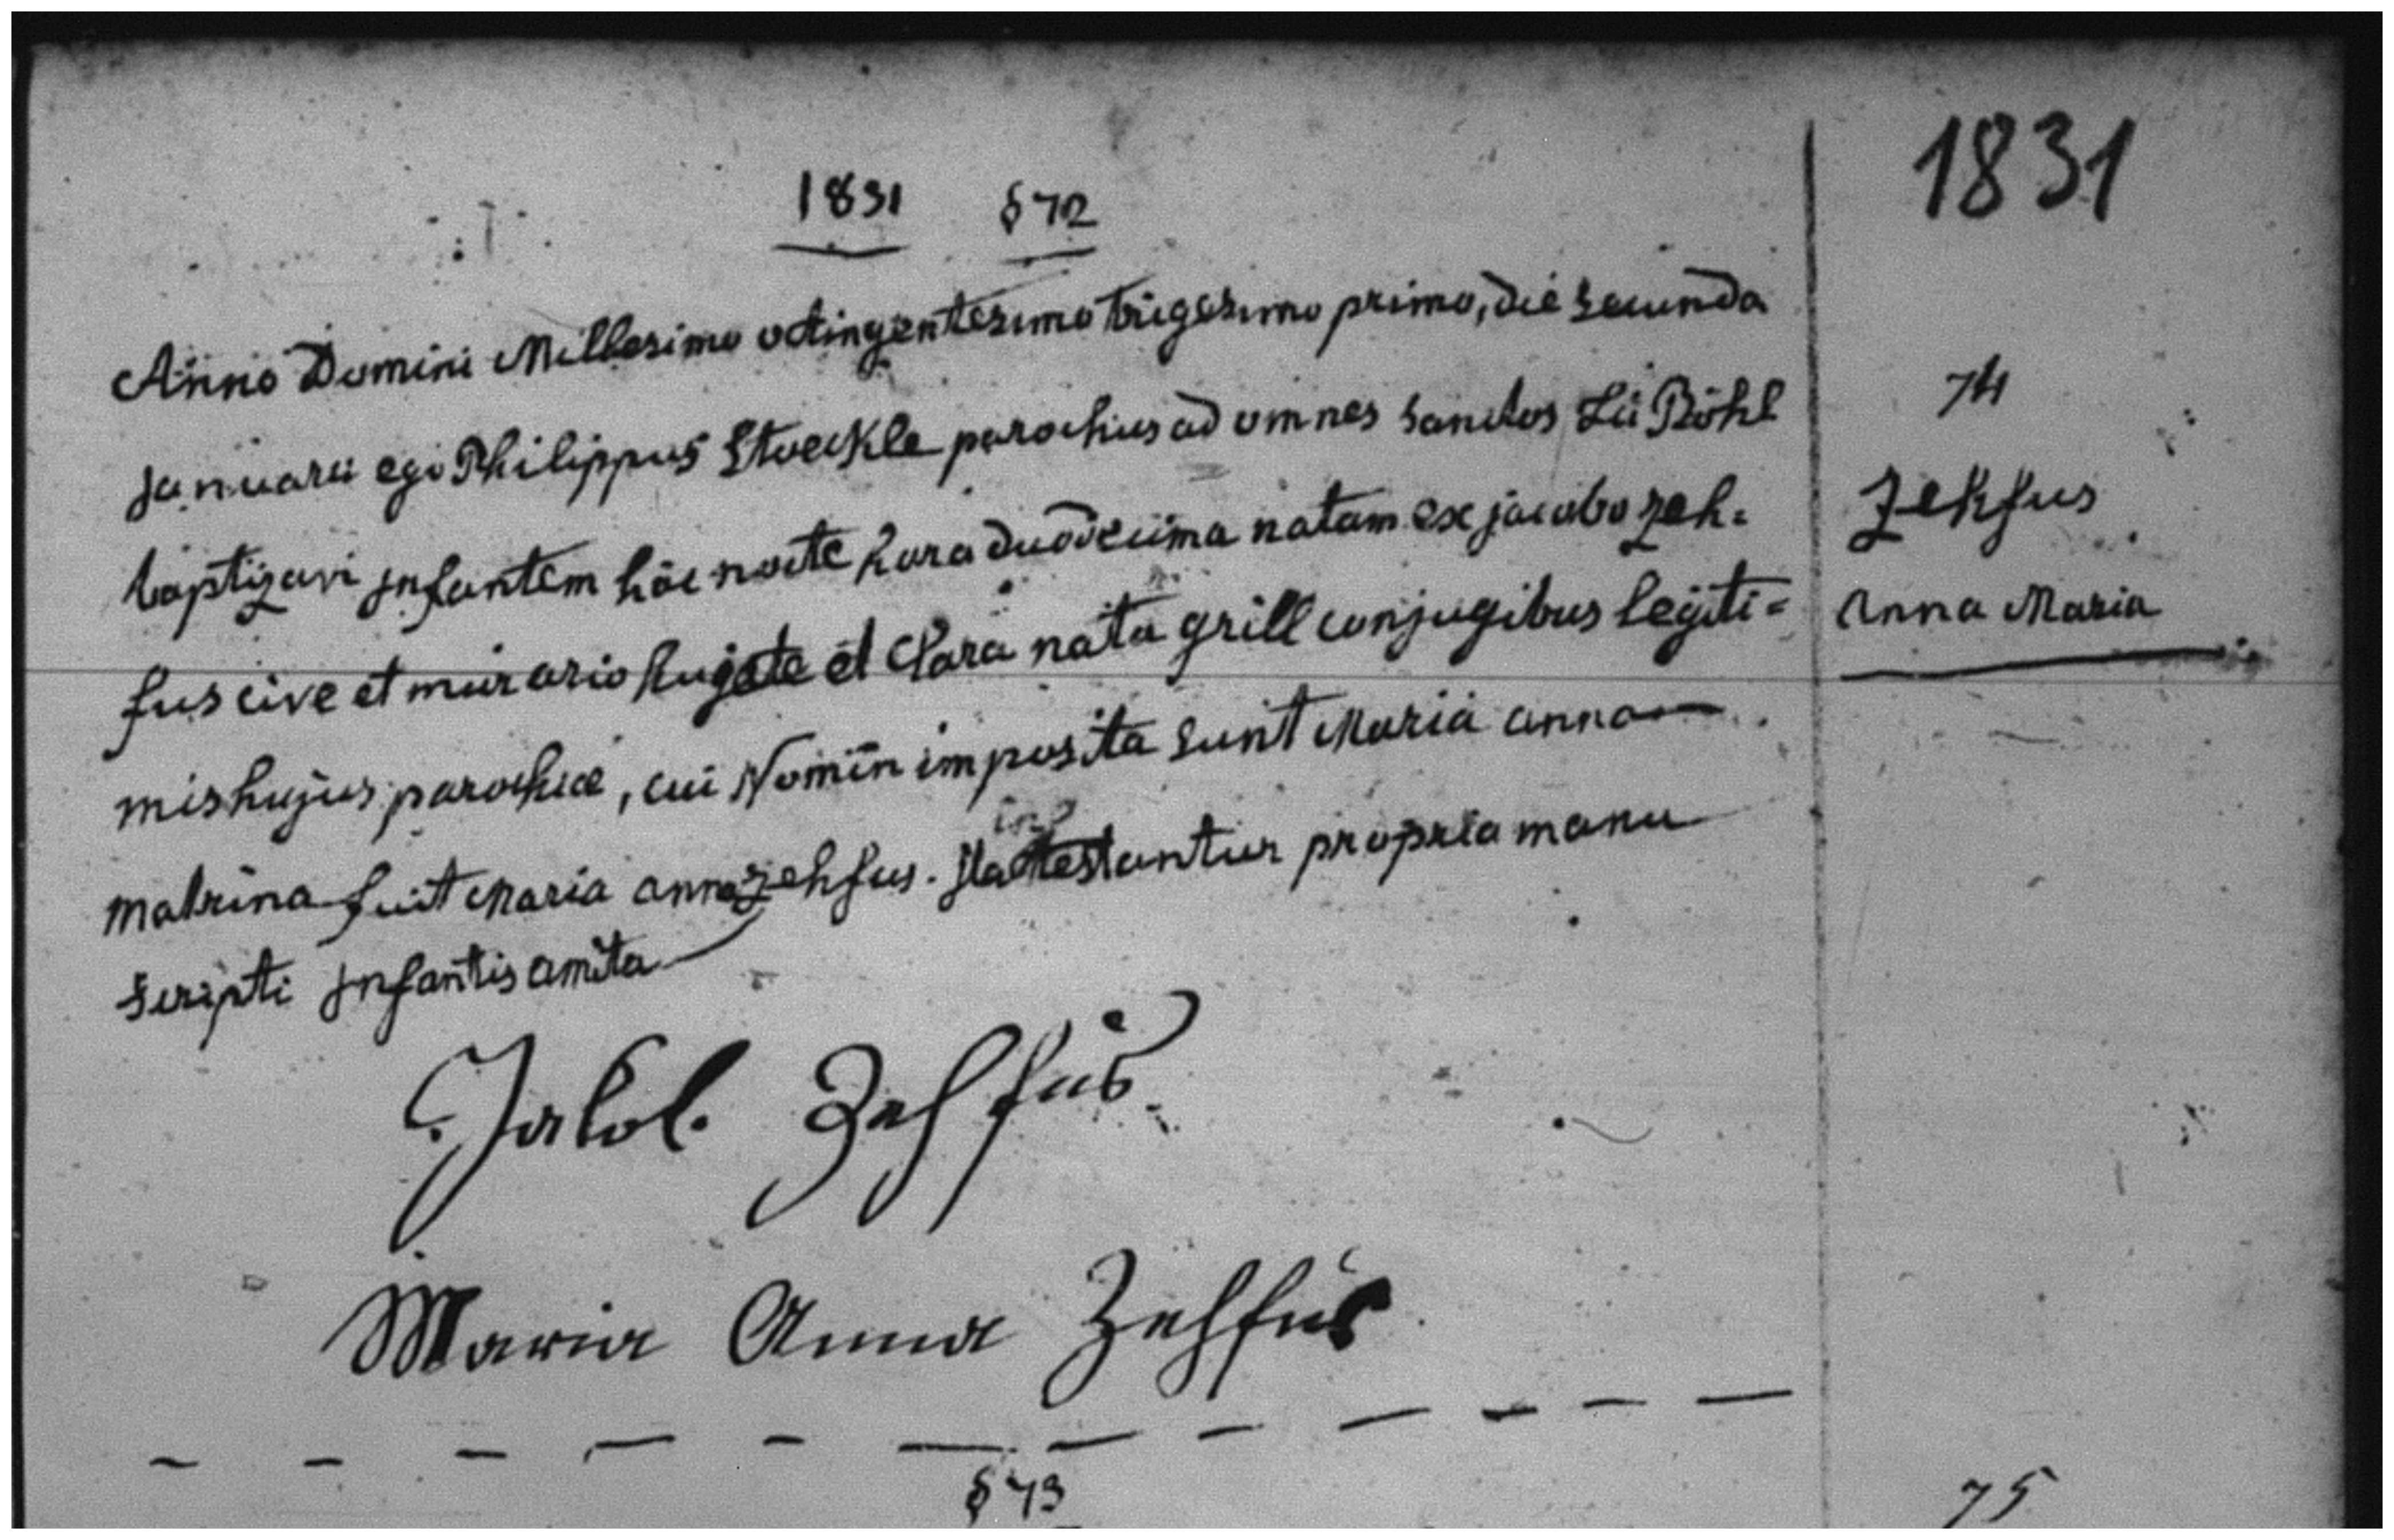 1831 § 72
1831
Anno Domini Millesimo octingentesimo trigesimo primo, die secunda
Januarii ego Philippus Stoeckle parochus ad omnes sanctos Zü Böhl
74
baptizavi Jnfantem hâc nocte hora duodecima natam ex jacobo zeh=
Zehfus
fus cive et murario hujate et Clara nata grill conjugibus legiti=
Anna Maria
mis hujus parochiæ, cui Nomin imposita sunt Maria anna
matrina fuit Maria anna zehfus. Jta testantur propria manu
scripti Jnfantis amita
Jakob Zehfus
Maria Anna Zehfus
§ 73
75